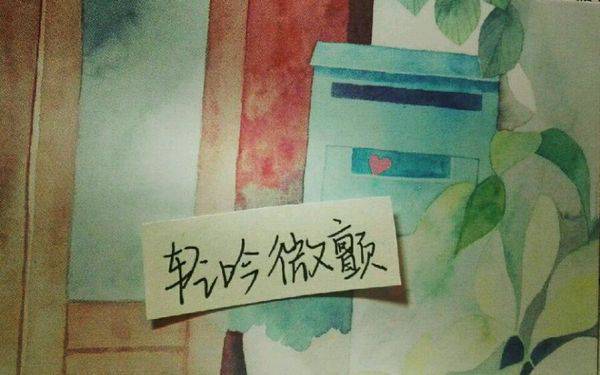 轻吟微颤